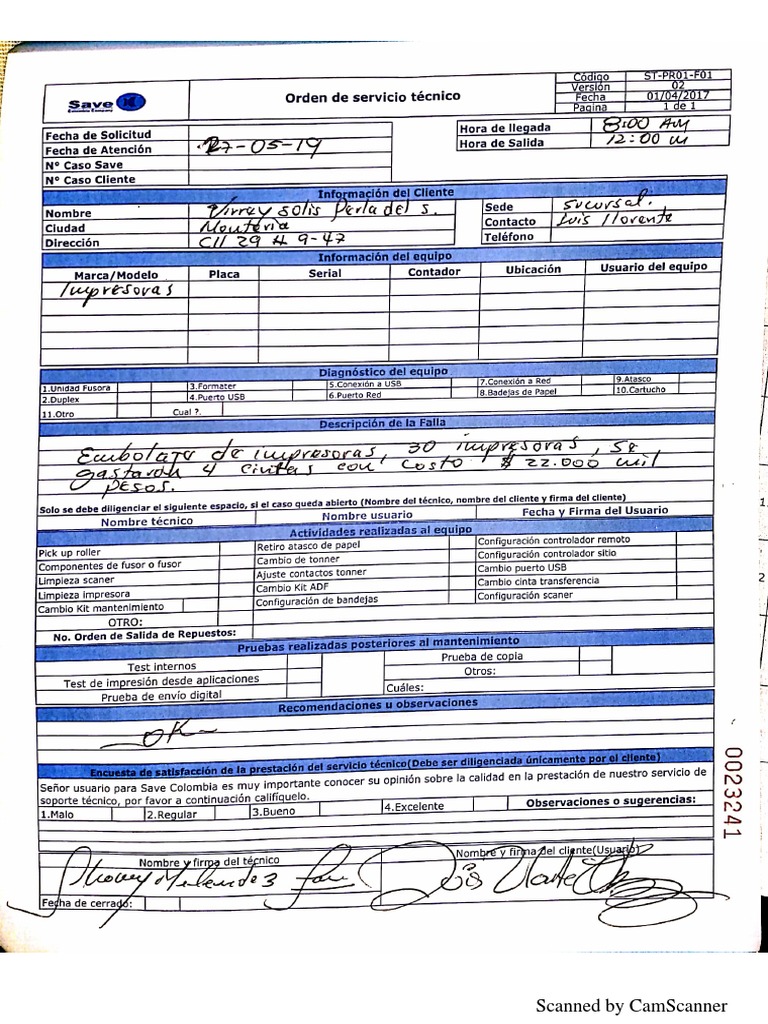 Save
Colombia Company
Orden de servicio técnico
Código ST-PR01-F01
Versión 02
Fecha 01/04/2017
Pagina 1 de 1
Fecha de Solicitud
Fecha de Atención 27-05-19
N° Caso Save
N° Caso Cliente
Hora de llegada 8:00 AM
Hora de Salida 12:00 m
Información del Cliente
Nombre Virrey solis Perla del s.
Ciudad Monteria
Dirección Cll 29 # 9-47
Sede sucursal.
Contacto Luis Llorente
Teléfono
Información del equipo
Marca/Modelo Placa Serial Contador Ubicación Usuario del equipo
Impresoras
Diagnóstico del equipo
1.Unidad Fusora 3.Formater 5.Conexión a USB 7.Conexión a Red 9.Atasco
2.Duplex 4.Puerto USB 6.Puerto Red 8.Badejas de Papel 10.Cartucho
11.Otro Cual ?.
Descripción de la Falla
Embolaje de impresoras, 30 impresoras, se
gastaron 4 cintas con costo $ 22.000 mil
pesos.
Solo se debe diligenciar el siguiente espacio, si el caso queda abierto (Nombre del técnico, nombre del cliente y firma del cliente)
Nombre técnico Nombre usuario Fecha y Firma del Usuario
Actividades realizadas al equipo
Pick up roller Retiro atasco de papel Configuración controlador remoto
Componentes de fusor o fusor Cambio de tonner Configuración controlador sitio
Limpieza scaner Ajuste contactos tonner Cambio puerto USB
Limpieza impresora Cambio Kit ADF Cambio cinta transferencia
Cambio Kit mantenimiento Configuración de bandejas Configuración scaner
OTRO:
No. Orden de Salida de Repuestos:
Pruebas realizadas posteriores al mantenimiento
Test internos Prueba de copia
Test de impresión desde aplicaciones Otros:
Prueba de envío digital Cuáles:
Recomendaciones u observaciones
OK
Encuesta de satisfacción de la prestación del servicio técnico(Debe ser diligenciada únicamente por el cliente)
Señor usuario para Save Colombia es muy importante conocer su opinión sobre la calidad en la prestación de nuestro servicio de
soporte técnico, por favor a continuación califíquelo.
1.Malo 2.Regular 3.Bueno 4.Excelente Observaciones o sugerencias:
0023241
Nombre y firma del técnico Nombre y firma del cliente(Usuario)
Fecha de cerrado:
Scanned by CamScanner